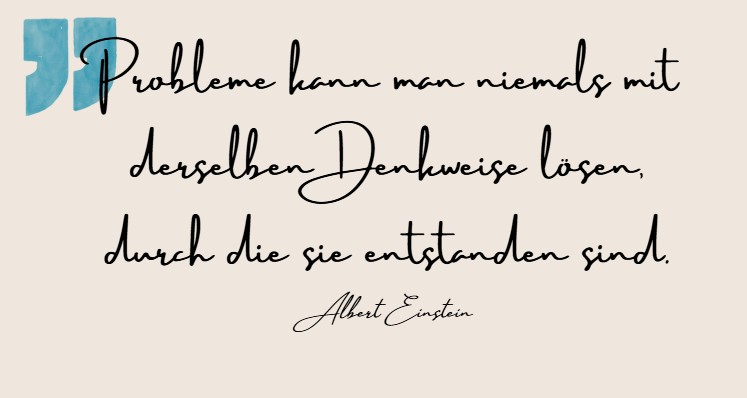 Probleme kann man niemals mit
derselben Denkweise lösen,
durch die sie entstanden sind.
Albert Einstein